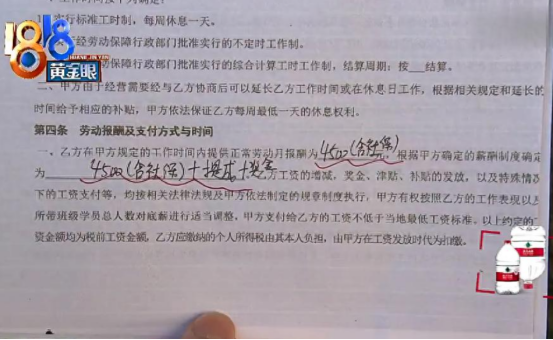 1818
HUANG JIN YAN
黄金眼
实行标准工时制,每周休息一天。
经劳动保障行政部门批准实行的不定时工作制。
劳动保障行政部门批准实行的综合计算工时工作制,结算周期:按___结算。
二、甲方由于经营需要经与乙方协商后可以延长乙方工作时间或在休息日工作,根据相关规定和延长的
时间给予相应的补贴,甲方依法保证乙方每周最低一天的休息权利。
第四条 劳动报酬及支付方式与时间
一、乙方在甲方规定的工作时间内提供正常劳动月报酬为4500(含社保)。根据甲方确定的薪酬制度确定
为4500(含社保)+提成+奖金乙方工资的增减,奖金、津贴、补贴的发放,以及特殊情况
下的工资支付等,均按相关法律法规及甲方依法制定的规章制度执行,甲方有权按照乙方的工作表现以及
所带班级学员总人数对底薪进行适当调整。甲方支付给乙方的工资不低于当地最低工资标准。以上约定的工
资金额均为税前工资金额,乙方应缴纳的个人所得税由其本人负担,由甲方在工资发放时代为扣缴。